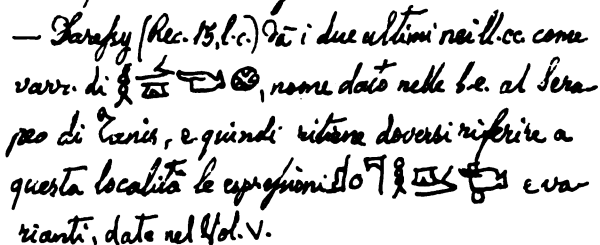 — Daressy (Rec. 15, l.c.) dà i due ultimi nei ll. cc. come
varr. di , nome dato nelle b.e. al Sera-
peo di Tanis, e quindi ritiene doversi riferire a
questa località le espressioni e va-
rianti, date nel Vol. V.